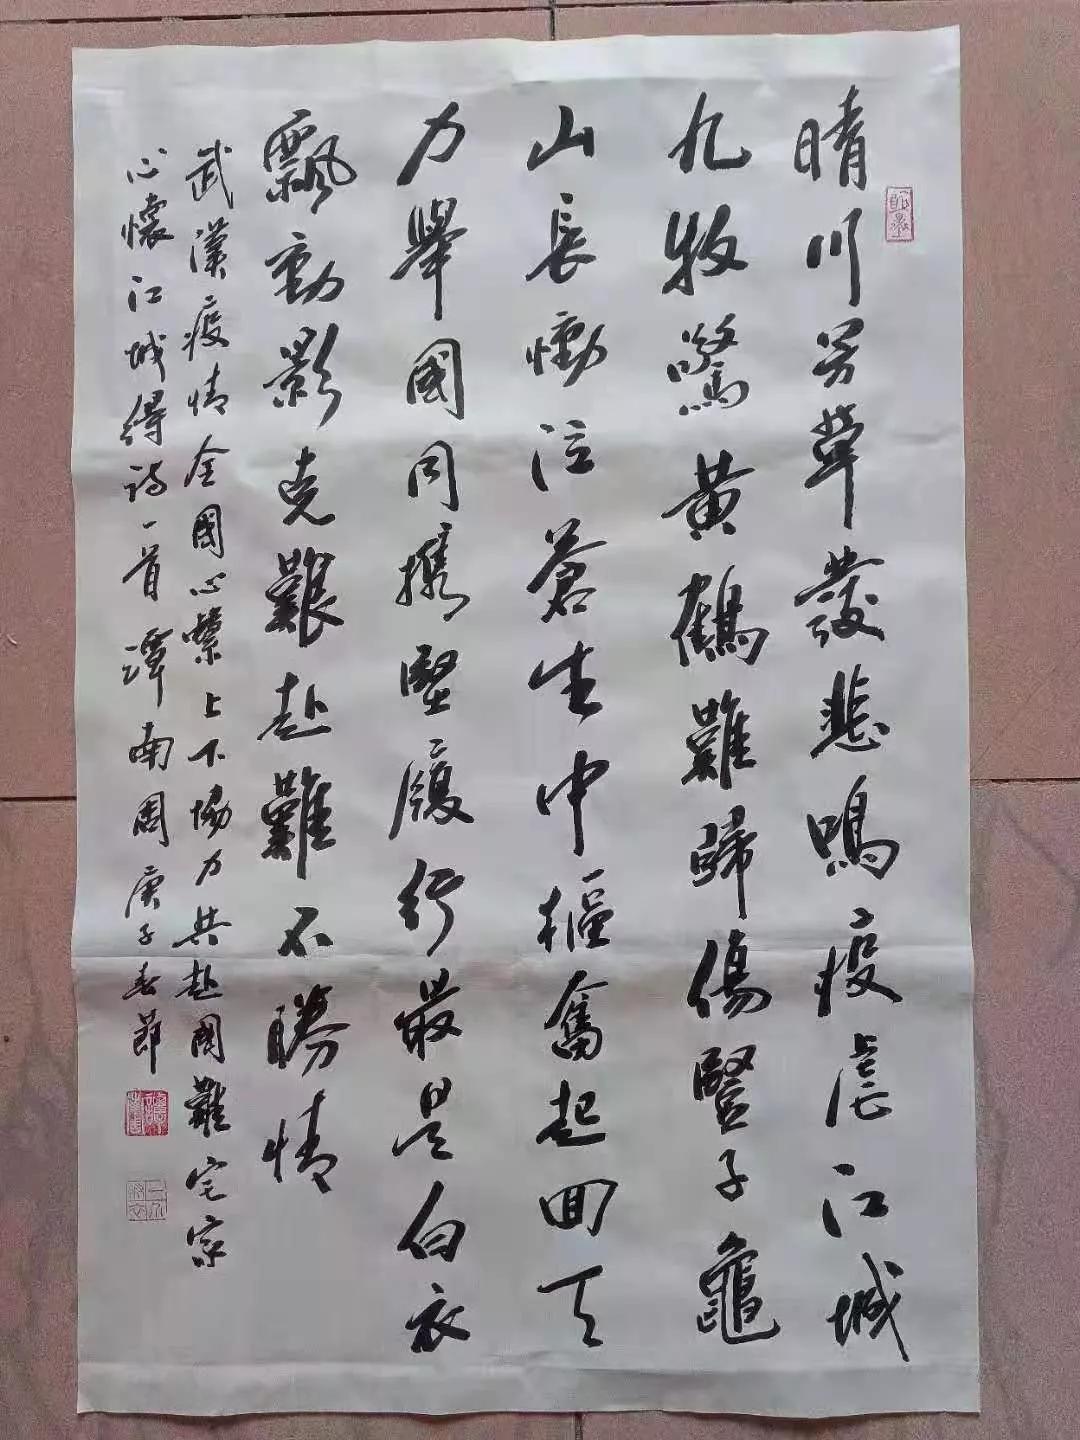 晴川芳草發悲鳴疫虐江城
九牧驚黃鶴難歸傷豎子龜
山長慟泣蒼生中樞奮起回天
力舉國同攜堅履行最是白衣
飄動影克艱赴難不勝情
武漢疫情全國心繫上下協力共赴國難宅家
心懷江城得詩一首譚南周庚子春節